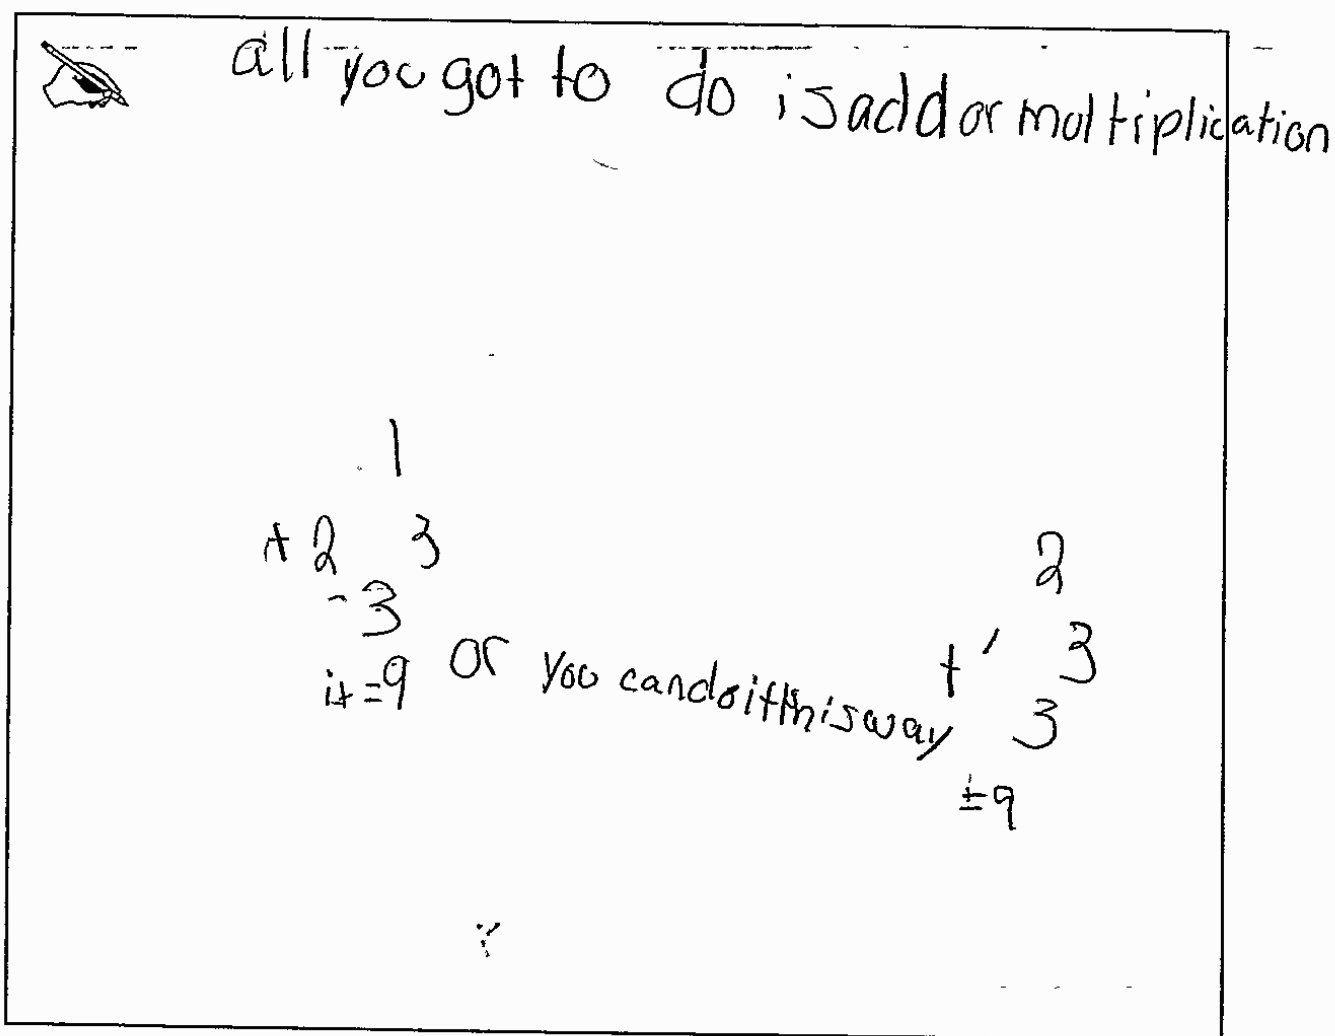 all you got to do is add or multiplication
1
+ 2 3
- 3
it = 9 or you can do it this way
2
+ ' 3
3
± 9